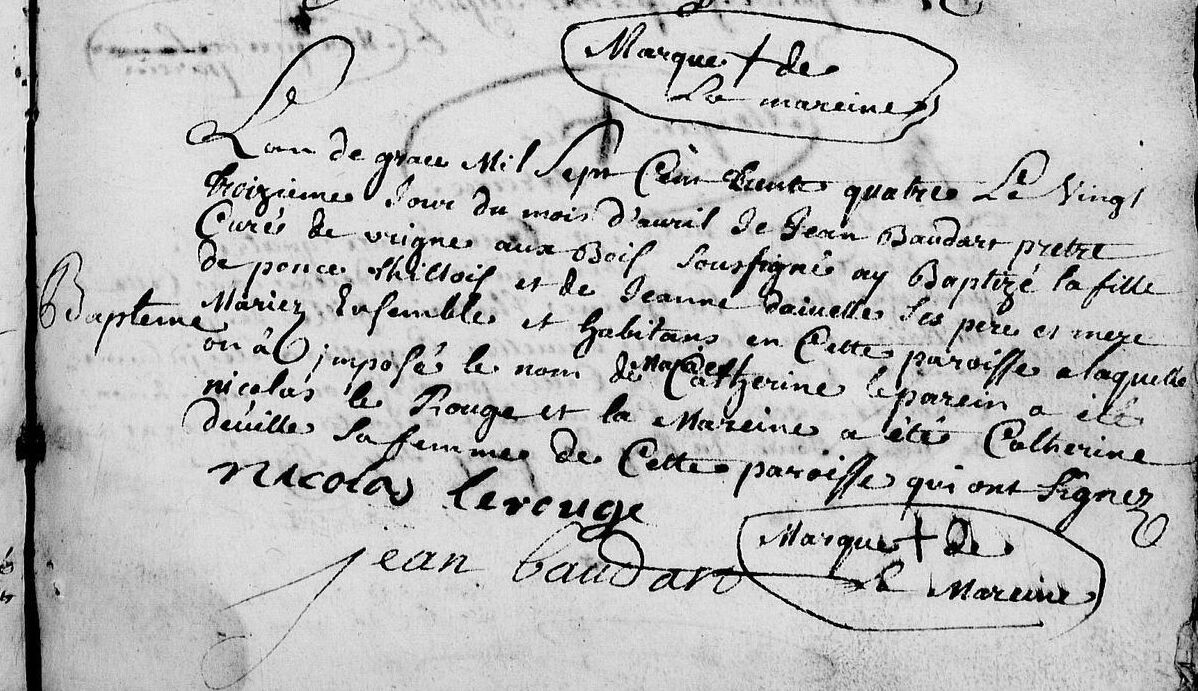 Marque + de
La mareine
L'an de grace Mil Sept Cent trente quatre Le Vingt
troizieme Jour du mois d'auril Je Jean Baudart pretre
Curé de vrigne aux Bois soussigné ay Baptizé la fille
de ponce et de Jeanne dainelle Ses pere et mere
Bapteme
Mariez Ensemble et habitans en Cette paroisse a laquelle
on à imposé le nom de Catherine le parein a été
nicolas le Rouge et la Mareine a été Catherine
deuille sa femme de Cette paroisse qui ont signez
nicolas lerouge
Marque + de
jean baudart
La Mareine